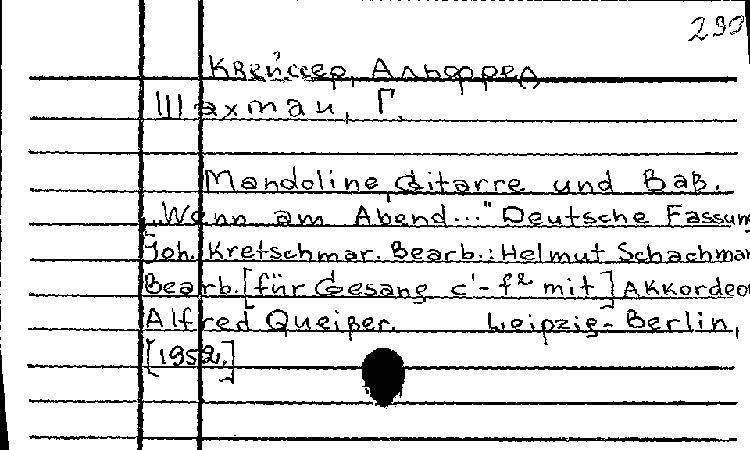 290
Квейссер, Альфред
Шахман, Г.
Mandoline, Gitarre und Baß.
„Wenn am Abend..." Deutsche Fassung
Joh. Kretschmar. Bearb.: Helmut Schachman
Bearb. [für Gesang c'-f² mit] Akkordeo
Alfred Queißer. Leipzig-Berlin,
[1952.]